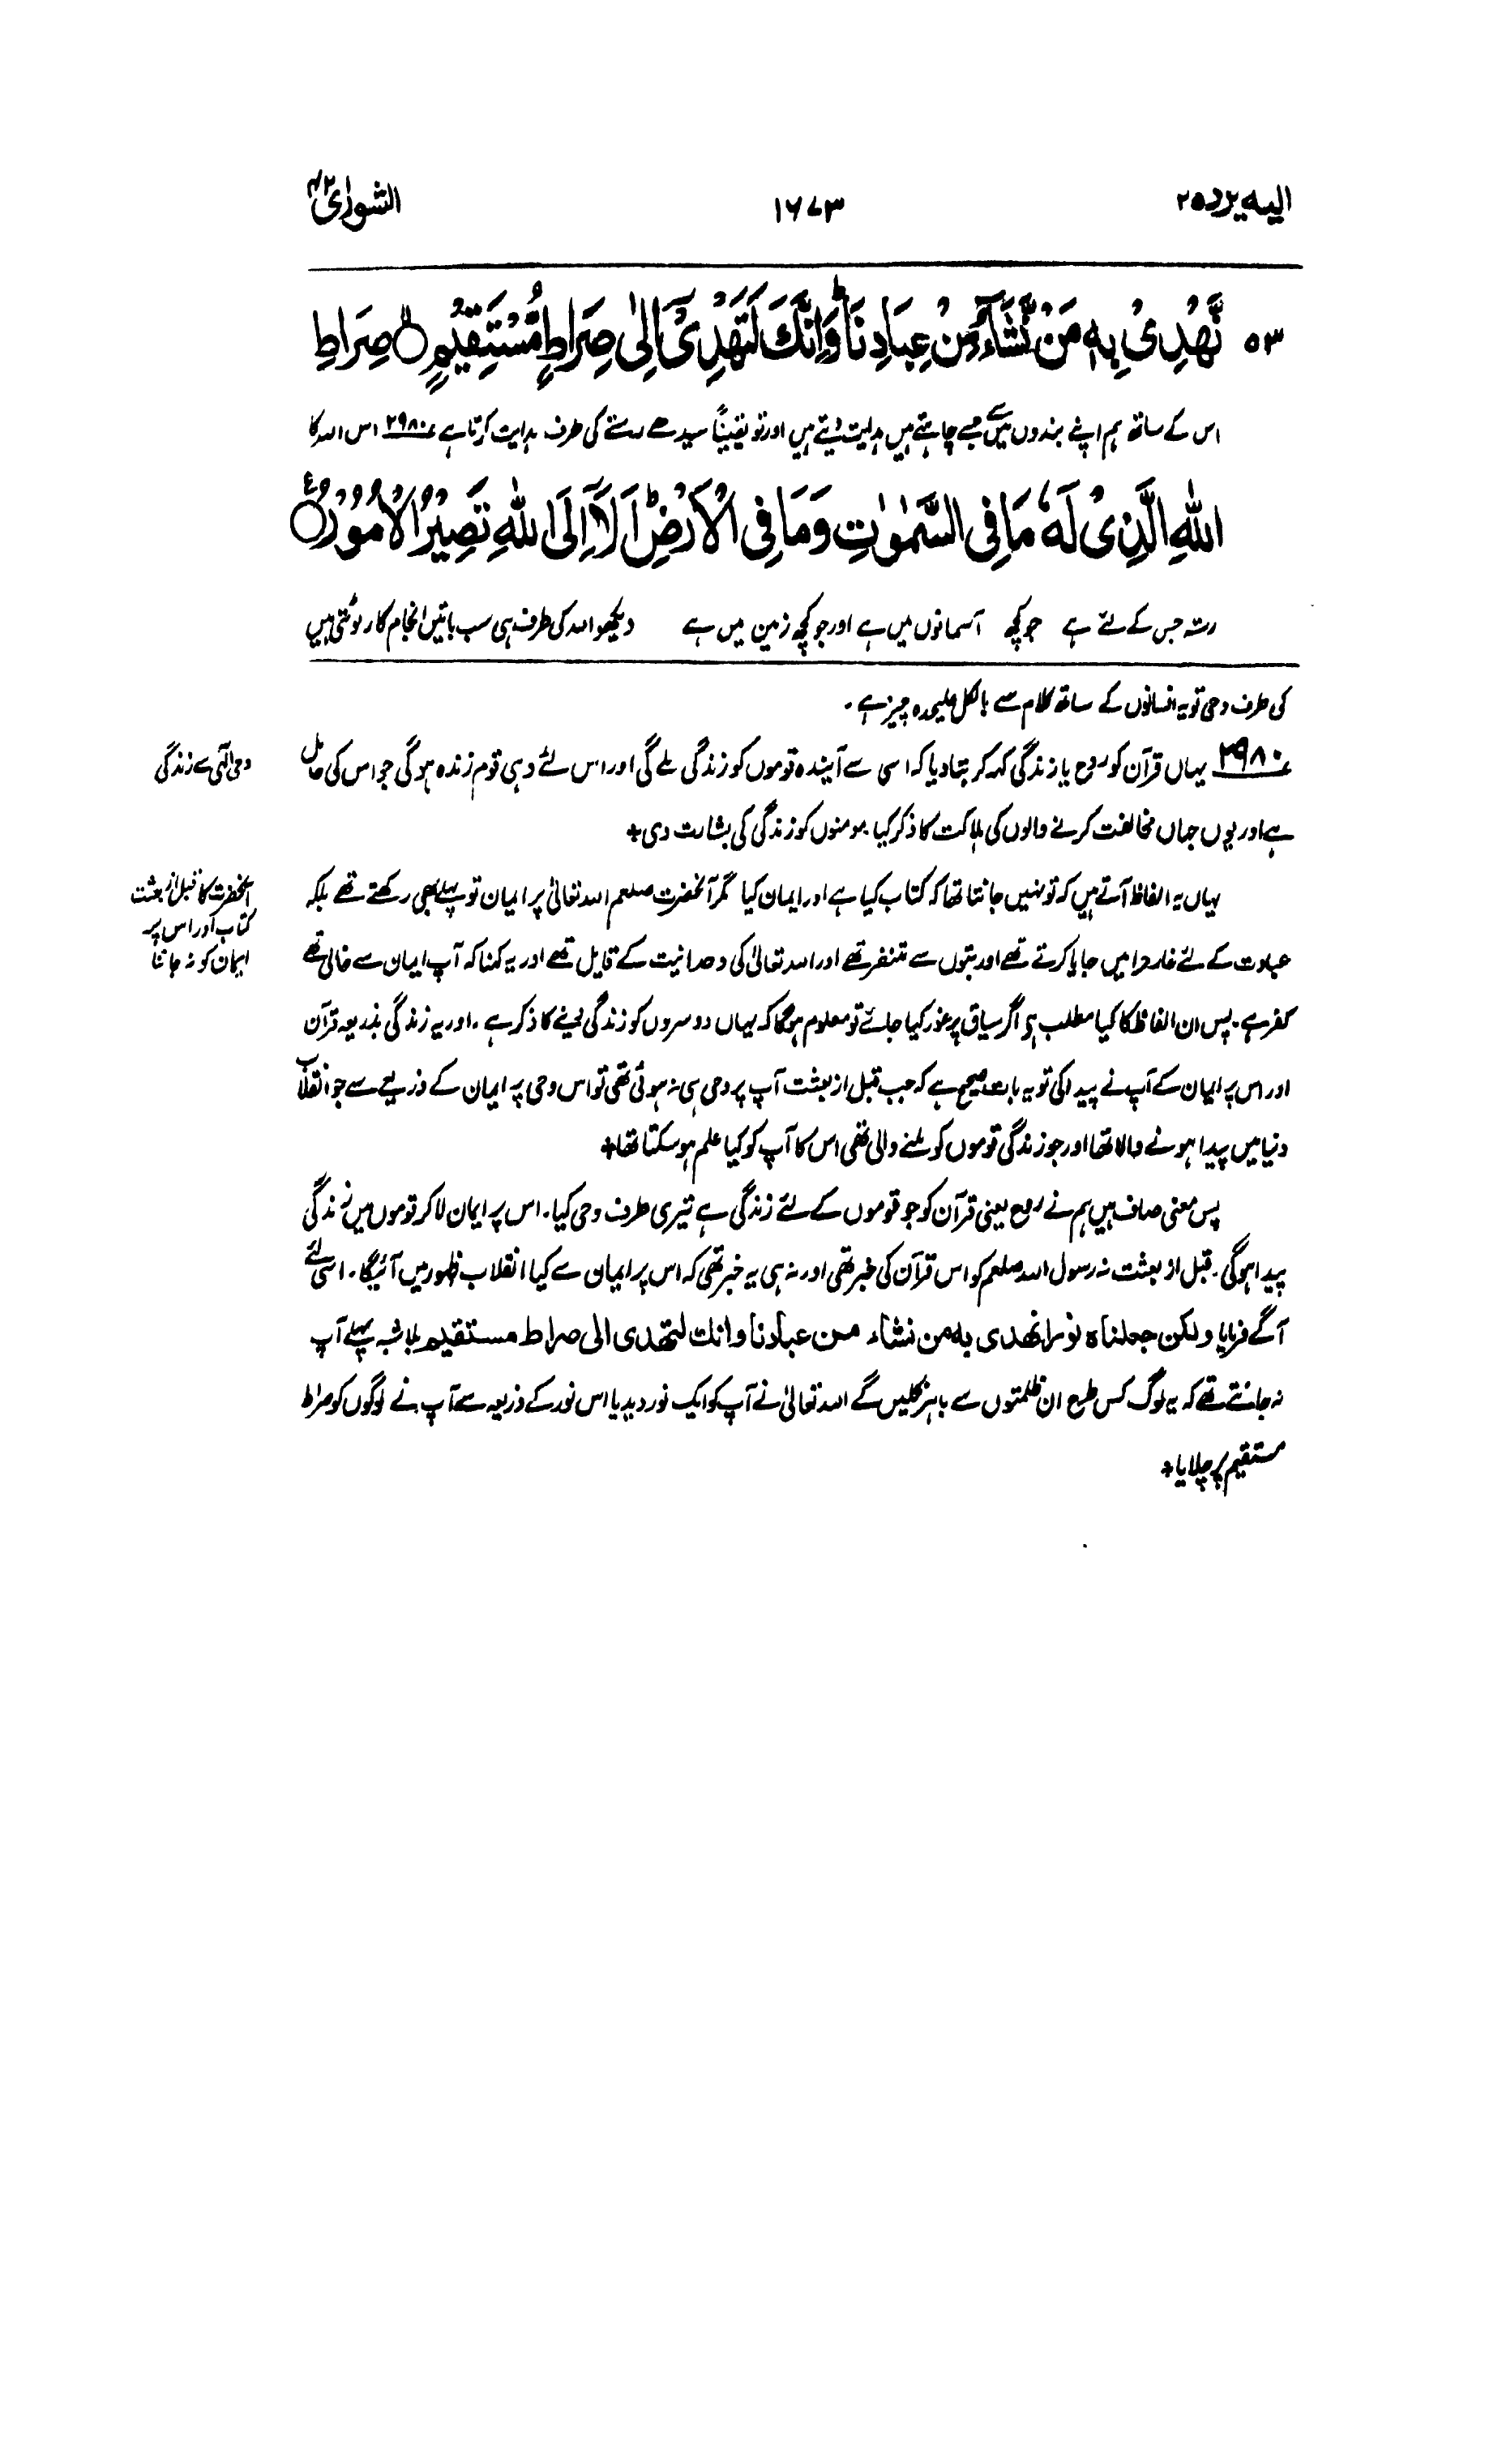 الیہ یرد ۲۵
۱۶۷۳
الشورٰی ۴۲
۵۳ نَّهْدِیْ بِهٖ مَنْ نَّشَآءُ مِنْ عِبَادِنَا ؕ وَاِنَّكَ لَتَهْدِیْۤ اِلٰی صِرَاطٍ مُّسْتَقِیْمٍ ۝ صِرَاطِ
اس کے ساتھ ہم اپنے بندوں میں سے جسے چاہتے ہیں ہدایت دیتے ہیں اور تو یقیناً سیدھے رستے کی طرف ہدایت کرتا ہے ۲۹۸۰ اس اللہ کا
اللّٰهِ الَّذِیْ لَهٗ مَا فِی السَّمٰوٰتِ وَمَا فِی الْاَرْضِ ؕ اَلَاۤ اِلَی اللّٰهِ تَصِیْرُ الْاُمُوْرُ ۝ ع
رستہ جس کے لئے ہے جو کچھ آسمانوں میں ہے اور جو کچھ زمین میں ہے دیکھو اللہ کی طرف ہی سب باتیں انجام کار لوٹتی ہیں
کی طرف وحی تو یہ انسانوں کے ساتھ کلام سے بالکل علیحدہ چیز ہے۔
۲۹۸۰ یہاں قرآن کو روح یا زندگی کہہ کر بتا دیا کہ اسی سے آیندہ قوموں کو زندگی ملے گی اور اس لئے وہی قوم زندہ ہوگی جو اس کی حامل
وحی الٰہی سے زندگی
ہے اور یوں جہاں مخالفت کرنے والوں کی ہلاکت کا ذکر کیا۔ مومنوں کو زندگی کی بشارت دی+
یہاں یہ الفاظ آتے ہیں کہ تو نہیں جانتا تھا کہ کتاب کیا ہے اور ایمان کیا مگر آنحضرت صلعم اللہ تعالیٰ پر ایمان تو پہلے بھی رکھتے تھے بلکہ
آنحضرت کا قبل از بعثت
کتاب اور اس پر
ایمان کو نہ جاننا
عبادت کے لئے غار حرا میں جایا کرتے تھے اور بتوں سے متنفر تھے اور اللہ تعالیٰ کی وحدانیت کے قایل تھے اور یہ کہنا کہ آپ ایمان سے خالی تھے
کفر ہے۔ پس ان الفاظ کا کیا مطلب ہو اگر سیاق پر غور کیا جائے تو معلوم ہوگا کہ یہاں دوسروں کو زندگی دینے کا ذکر ہے۔ اور یہ زندگی بذریعہ قرآن
اور اس پر ایمان کے آپ نے پیدا کی تو یہ بات صحیح ہے کہ جب قبل از بعثت آپ پر وحی ہی نہ ہوئی تھی تو اس وحی پر ایمان کے ذریعے سے جو انقلاب
دنیا میں پیدا ہونے والا تھا اور جو زندگی قوموں کو ملنے والی تھی اس کا آپ کو کیا علم ہو سکتا تھا+
پس معنی صاف ہیں ہم نے روح یعنی قرآن کو جو قوموں کے لئے زندگی ہے تیری طرف وحی کیا۔ اس پر ایمان لا کر قوموں میں زندگی
پیدا ہوگی۔ قبل از بعثت نہ رسول اللہ صلعم کو اس قرآن کی خبر تھی اور نہ ہی یہ خبر تھی کہ اس پر ایمان سے کیا انقلاب ظہور میں آئیگا۔ اسی لئے
آگے فرمایا ولکن جعلناہ نورا نھدی بہ من نشاء من عبادنا وانك لتھدی الی صراط مستقیم بلا شبہ پہلے آپ
نہ جانتے تھے کہ یہ لوگ کس طرح ان ظلمتوں سے باہر نکلیں گے اللہ تعالیٰ نے آپ کو ایک نور دیدیا اس نور کے ذریعہ سے آپ نے لوگوں کو صراط
مستقیم پر چلایا+